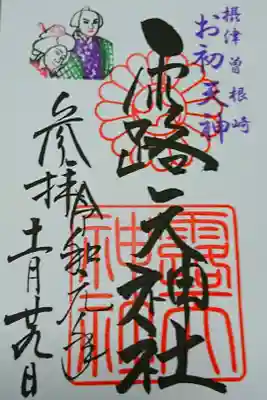 摂津曽根崎
お初天神
露天神社
参拝
令和元年
十一月廿九日
露天神社